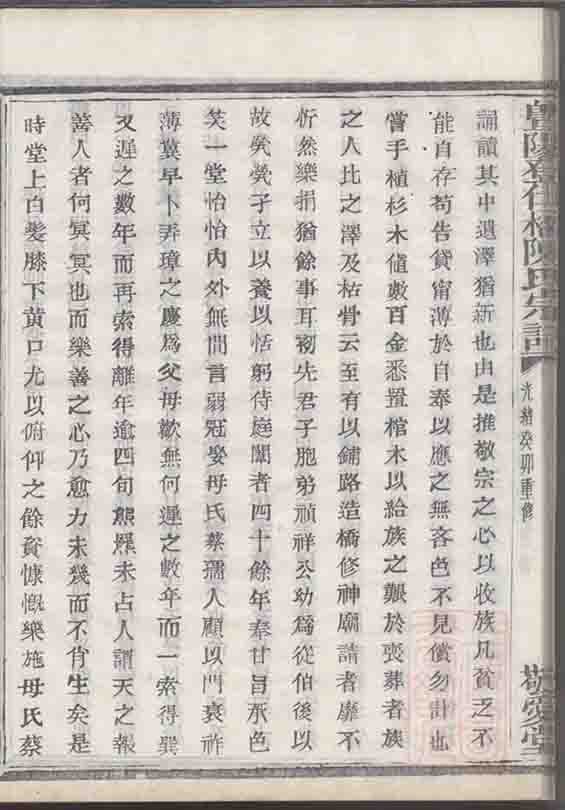 陳氏宗譜
光緒癸卯重修
敬愛堂
誦讀其中遺澤猶新也由是推敬宗之心以收族凡貧乏不
能自存苟告貸甯薄於自奉以應之無吝色不見償勿計也
嘗手植杉木値數百金悉置棺木以給族之艱於喪葬者族
之人比之澤及枯骨云至有以鋪路造橋修神廟請者靡不
忻然樂捐猶餘事耳初先君子胞弟禎祥公幼爲從伯後以
故煢煢孑立以養以恬躬侍庭闈者四十餘年奉甘旨承色
笑一堂怡怡內外無間言弱冠娶母氏蔡孺人顧以門衰祚
薄冀早卜弄璋之慶爲父母歡無何遲之數年而一索得巽
又遲之數年而再索得離年逾四旬熊羆未占人謂天之報
善人者何冥冥也而樂善之心乃愈力未幾而不肖生矣是
時堂上白髮膝下黃口尤以俯仰之餘資慷慨樂施母氏蔡